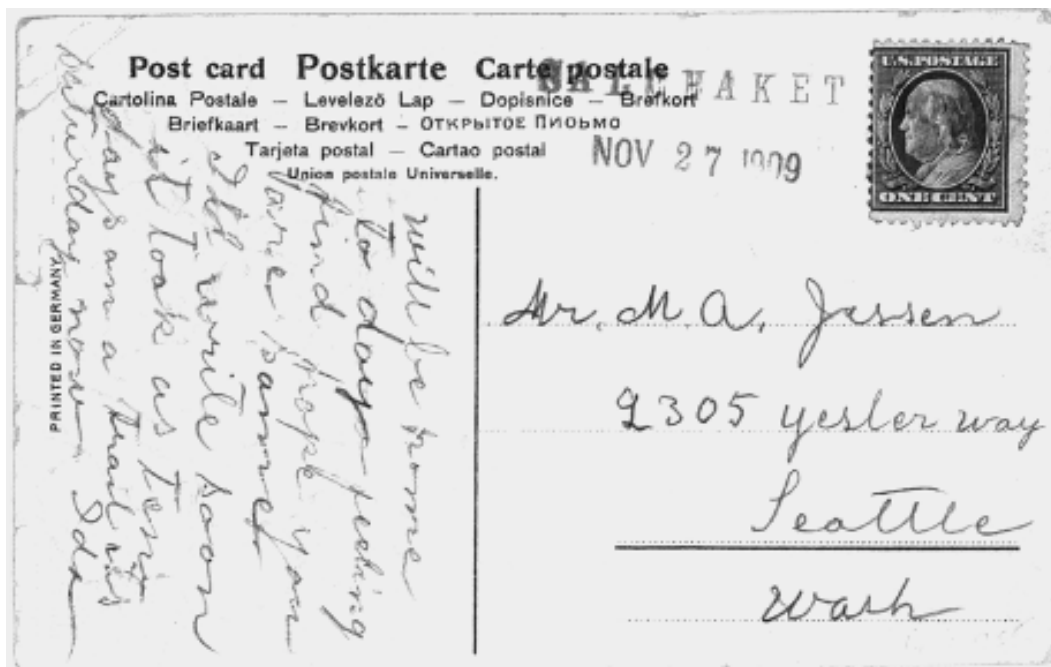 Post card Postkarte Carte postale
Cartolina Postale – Levelező Lap – Dopisnice – Brefkort
Briefkaart – Brevkort – ОТКРЫТОЕ ПИСЬМО
Tarjeta postal – Cartao postal
Union postale Universelle.
HAKET
NOV 27 1909
U.S. POSTAGE
ONE CENT
PRINTED IN GERMANY
will be home
to day feeling
find hope you
are same
Ill write soon
it took us ten
days on a trail its
Saturday now Ida
Mr. M. A. Jassen
2305 yesler way
Seattle
Wash